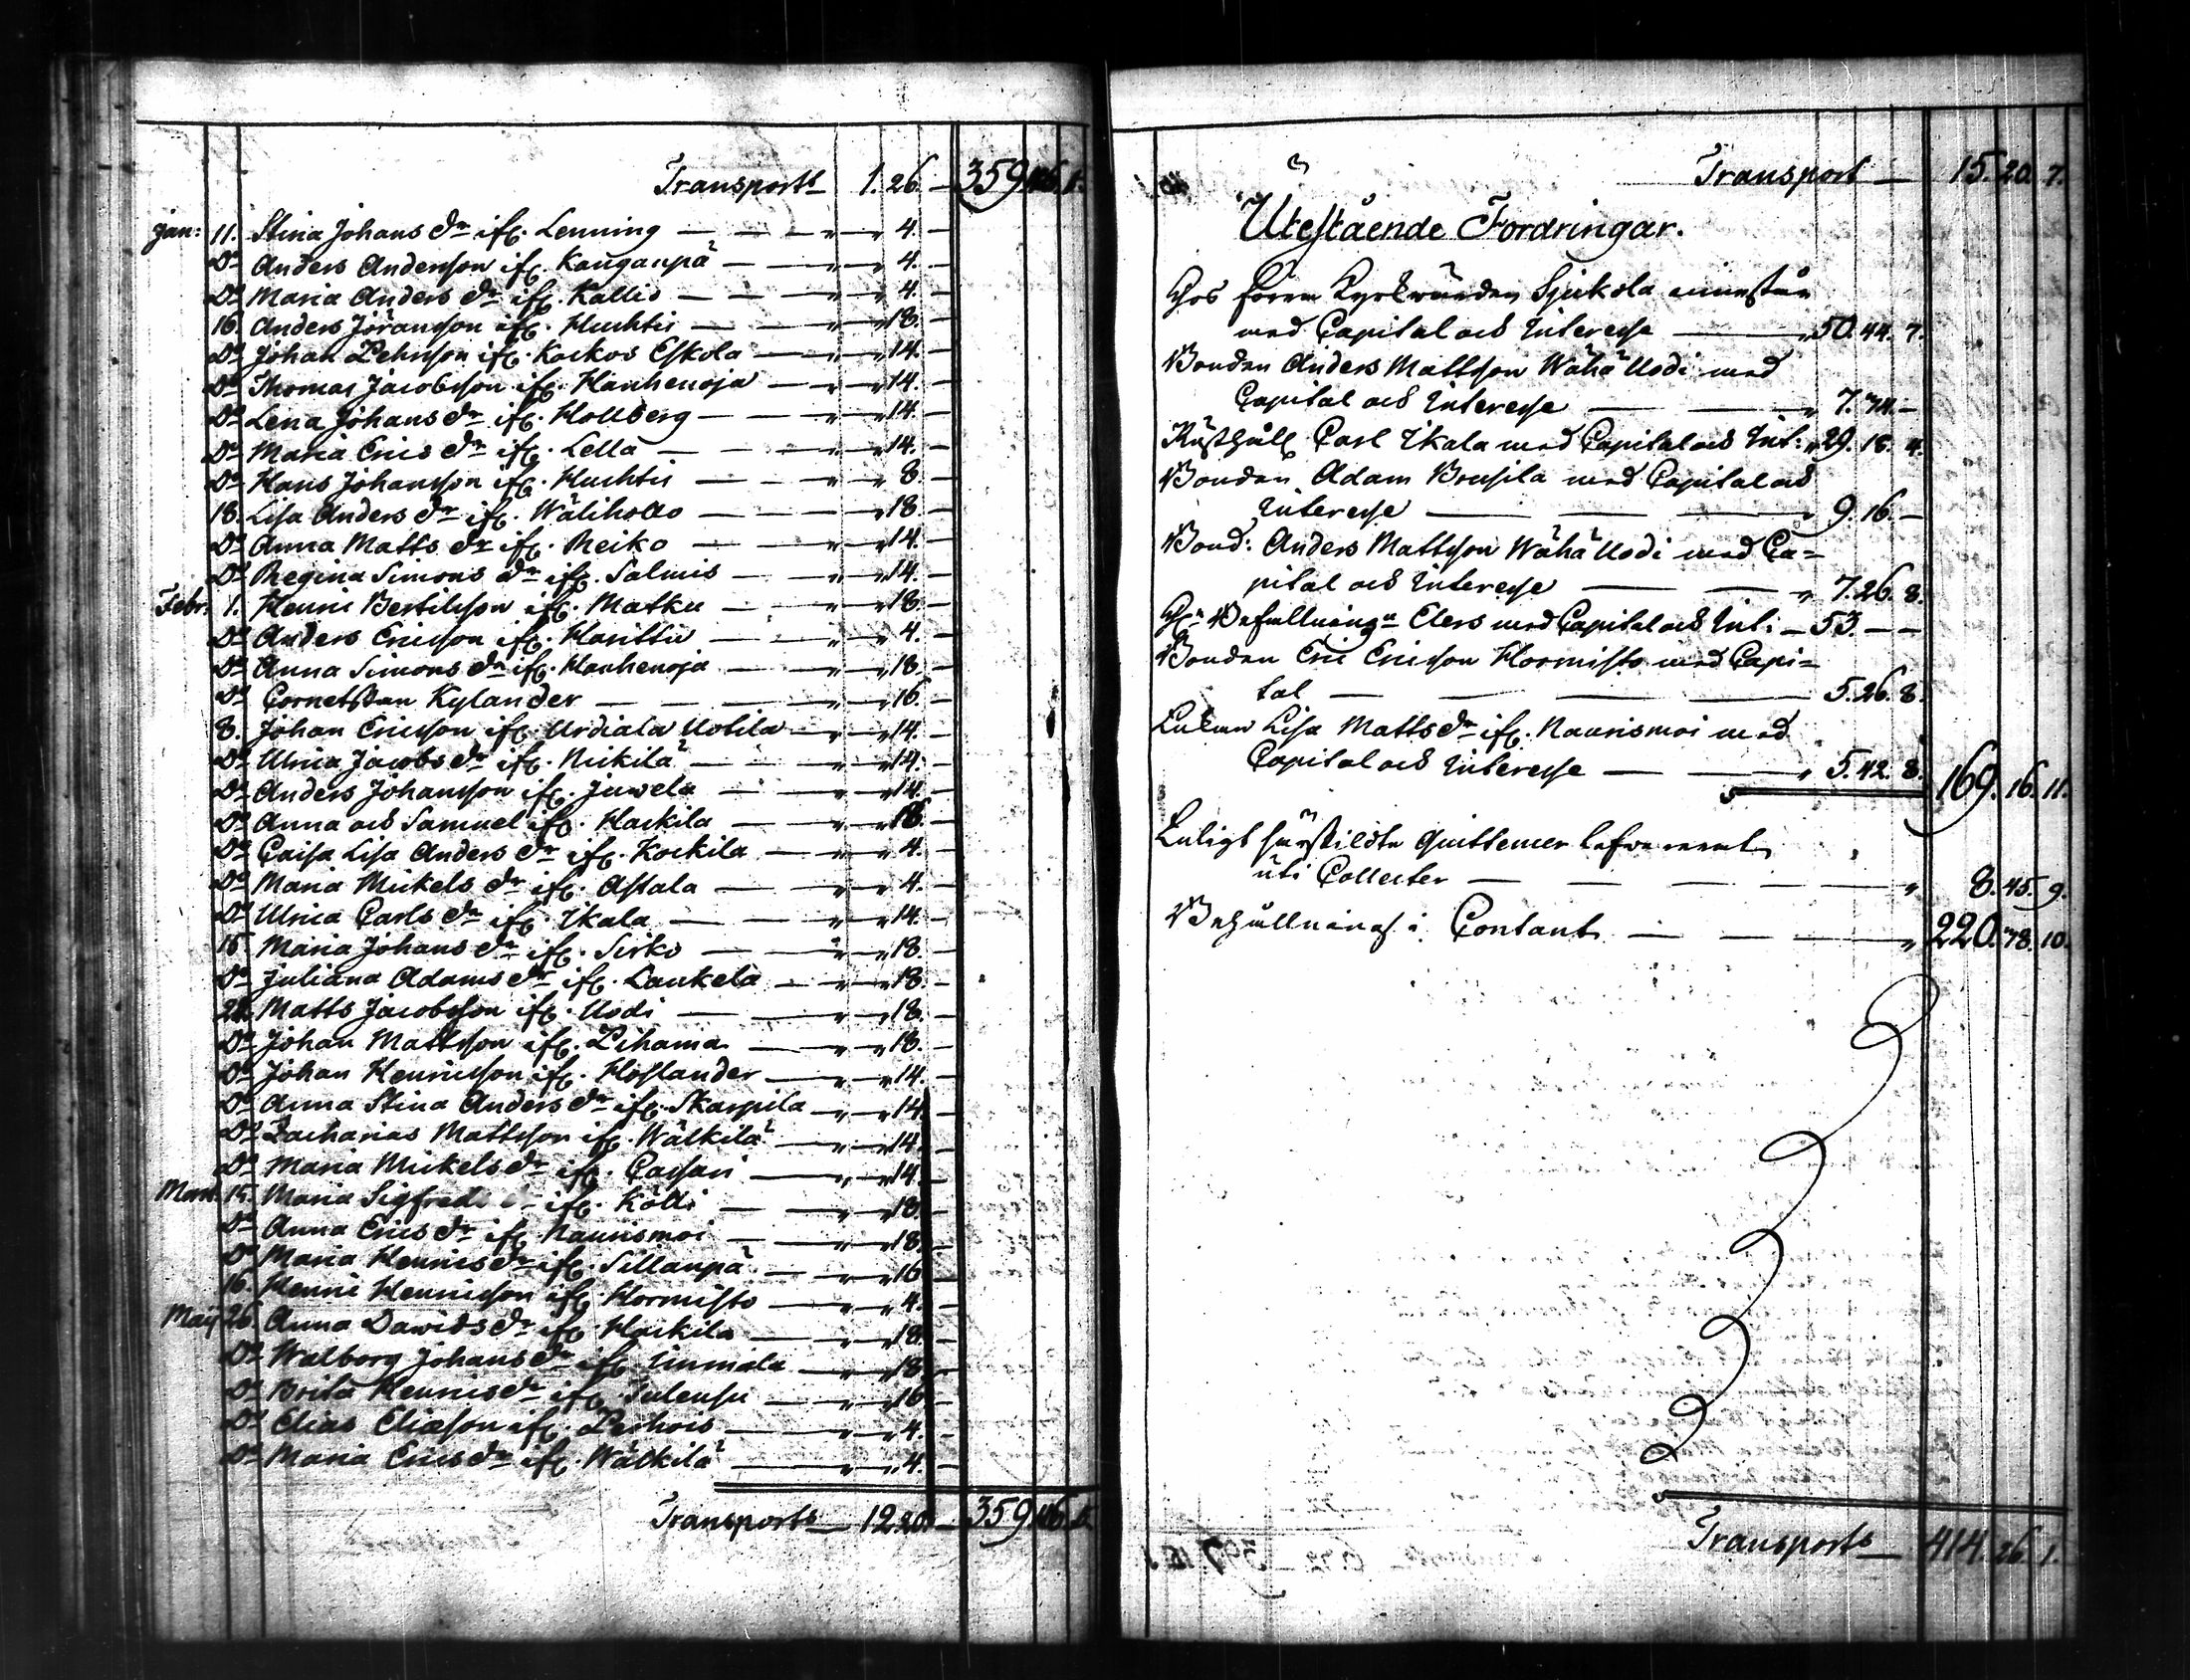 Transport 1. 26. — 359.
Jan: 11. Stina Johans dr ifr. Lenning — 4. —
Do Anders Andersson ifr. Kauganpä — 4. —
Do Maria Anders dr ifr. Kallio — 4. —
16. Anders Jöransson ifr. Huchtis — 18. —
Do Johan ifr. Kockos Eskola — 14. —
Do Thomas Jacobsson ifr. Hanhenoja — 14. —
Do Lena Johans dr ifr. Hollberg — 14. —
Do Maria Erics dr ifr. Lella — 14. —
Do Hans Johansson ifr. Huchtis — 8 —
18. Lisa Anders dr ifr. Wälihollo — 18. —
Do Anna Matts dr ifr. Reiko — 14. —
Do Regina Simons dr ifr. Salmis — 14. —
Febr. 1. Henric Bertilsson ifr. Matku — 18. —
Do Anders Ericsson ifr. Harittu — 4. —
Do Anna Simons dr ifr. Hanhenoja — 18. —
Do Cornetskan Kylander — 16. —
8. Johan Ericsson ifr. Urdiala Uotila — 14. —
Do Ulrica Jacobs dr ifr. Nickilä — 14. —
Do Anders Johansson ifr. Juwela — 14. —
Do Anna och Samuel ifr. Hackila — —
Do Caisa Lisa Anders dr ifr. Kockila — 4. —
Do Maria Mickels dr ifr. Astala — 4. —
Do Ulrica Carls dr ifr. Ikala — 14. —
15. Maria Johans dr ifr. Sirko — 18. —
Do Juliana Adams dr ifr. Laukela — 18. —
Matts Jacobsson ifr. Uodi — 18. —
Do Johan Mattsson ifr. — 18. —
Do Johan Henricsson ifr. Hoflander — 14. —
Do Anna Stina Anders dr ifr. Skarpila — 14. —
Do Zacharias Mattsson ifr. Wälkilä — 14. —
Do Maria Mickels dr ifr. Cassari — 14. —
Mart. 15. Maria Sigfreds dr ifr. Kölli — 18. —
Do Anna Erics dr ifr. Naurismoi — 18. —
Do Maria Henrics dr ifr. Sillanpä — 16. —
16. Henric Henricsson ifr. Hormisto — 4. —
Maij 26. Anna Dawids dr ifr. Hackila — 18. —
Do Walborg Johans dr ifr. Unmala — 18. —
Do Brita Henrics dr ifr. — 16. —
Do Elias Eliasson ifr. — 4. —
Do Maria Erics dr ifr. Wälkilä — 4. —
Transport — 12.20. — 359.
Transport — 15. 20. 7.
Utestående Fordringar.
Hos förra Kyrkwärden Sjukola innestår
med Capital och Interesse — 50. 44. 7.
Bonden Anders Mattsson Wähä Uodi med
Capital och Interesse — 7. 74. —
Rusthåll. Carl Ikala med Capital och Int: 29. 18. 4.
Bonden Adam Bonsila med Capital och
Interesse — 9. 16. —
Bond: Anders Mattsson Wähä Uodi med Ca=
pital och Interesse — 7. 26. 8.
Hr Befallningn Elers med Capital och Int: — 53. — —
Bonden Eric Ericsson Hormisto med Capi=
tal — 5. 26. 8.
Enkan Lisa Matts dr ifr. Naurismoi med
Capital och Interesse — 5. 42. 8. 169. 16. 11.
Enligt särskildte quittencer lefwererat
uti Collecter — 8. 45. 9.
Behållning i Contant — 220. 78. 10.
Transport — 414. 26. 1.